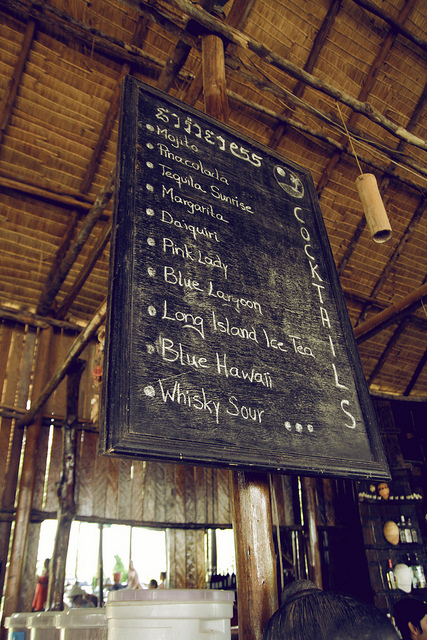 Mojito
Pinacolada
Tequila Sunrise
Margarita
Daiquiri
Pink Lady
Blue Largoon
Long Island Ice Tea
Blue Hawaii
Whisky Sour ...
COCKTAILS